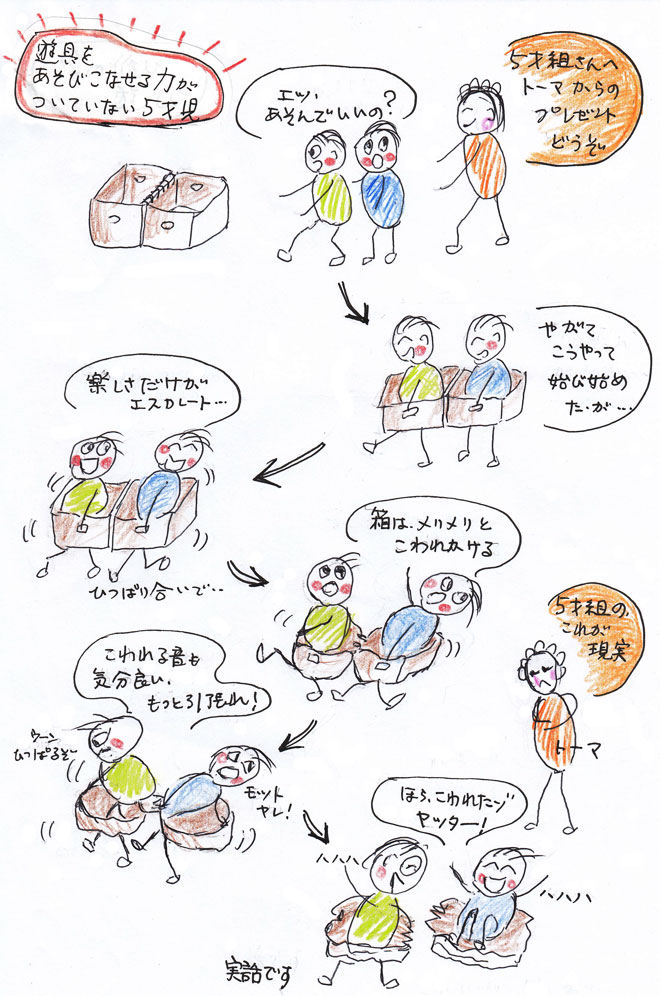 遊具を
あそびこなせる力が
ついていない5才児
エッ、
あそんでいいの?
5才組さんへ
トーマからの
プレゼント
どうぞ
やがて
こうやって
始び始め
た・が・・・
楽しさだけが
エスカレート・・・
ひっぱり合いで・・
箱は、メリメリと
こわれかける
5才組の
これが
現実
トーマ
こわれる音も
気分良い、
もっと引張れ!
ウーン
ひっぱるぞー
モット
ヤレ!
ほら、こわれたゾ
ヤッター!
ハハハ
ハハハ
実話です